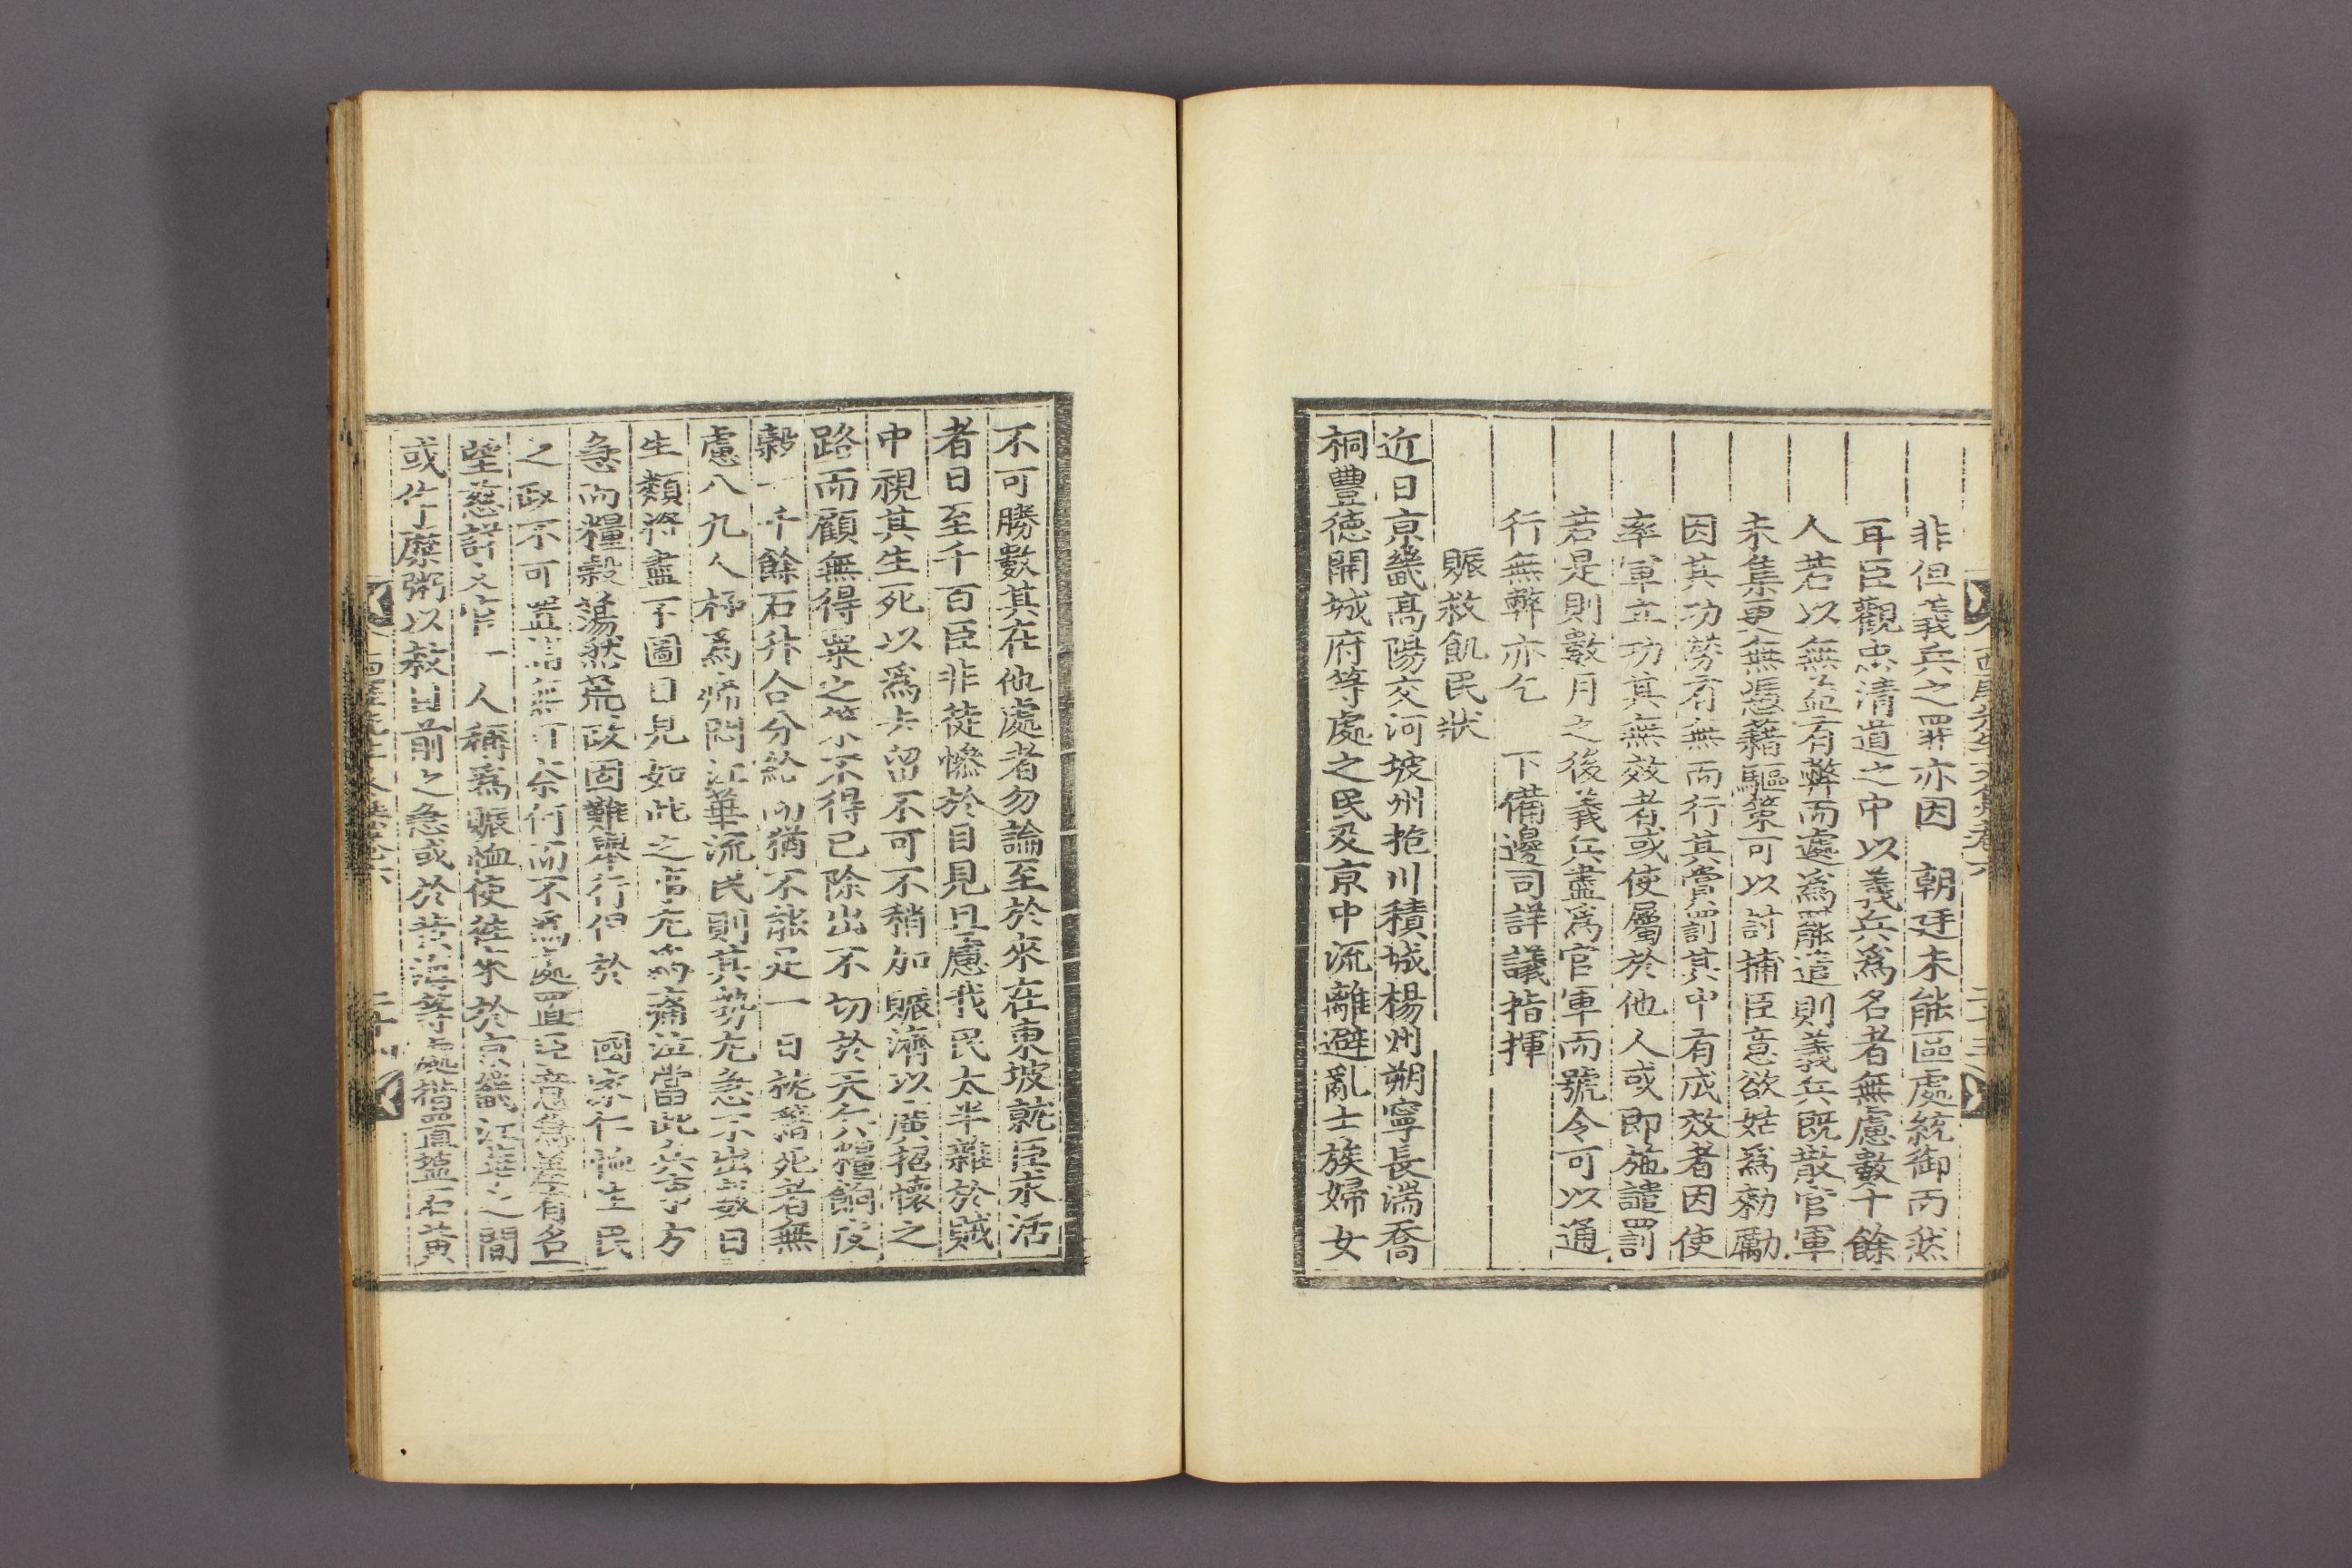 非但義兵之罪亦因　朝廷未能區處統御而然
耳臣觀忠清道之中以義兵爲名者無慮數十餘
人若以無益有弊而處爲罷遣則義兵旣散官軍
未集更無憑藉驅策可以討捕臣意欲姑爲勑勵
因其功勞有無而行其賞罰其中有成效者因使
率軍立功其無效者或使屬於他人或即施譴罰
若是則數月之後義兵盡爲官軍而號令可以通
行無弊亦乞　下備邊司詳議指揮
賑救飢民狀
近日京畿高陽交河坡州抱川積城楊州朔寧長湍喬
桐豊德開城府等處之民及京中流離避亂士族婦女
不可勝數其在他處者勿論至於來在東坡就臣求活
者日至千百臣非徒慘於目見且慮我民太半雜於賊
中視其生死以爲去留不可不稍加賑濟以廣招懷之
路而顧無得粟之策不得已除出不切於天兵糧餉皮
穀一千餘石升合分給而猶不能足一日就簽死者無
慮八九人極爲痛悶江華流民則其勢尤急不出數日
生類將盡不圖目見如此之事尤爲痛泣當此兵事方
急而糧穀蕩然荒政固難擧行但於　國家仁恤生民
之政不可置諸無可奈何而不爲處置臣意爲差有名
望慈詳文官一人稱爲賑恤使往來於京畿江華之間
或作糜粥以救目前之急或於黃海等處措置鹽石黃